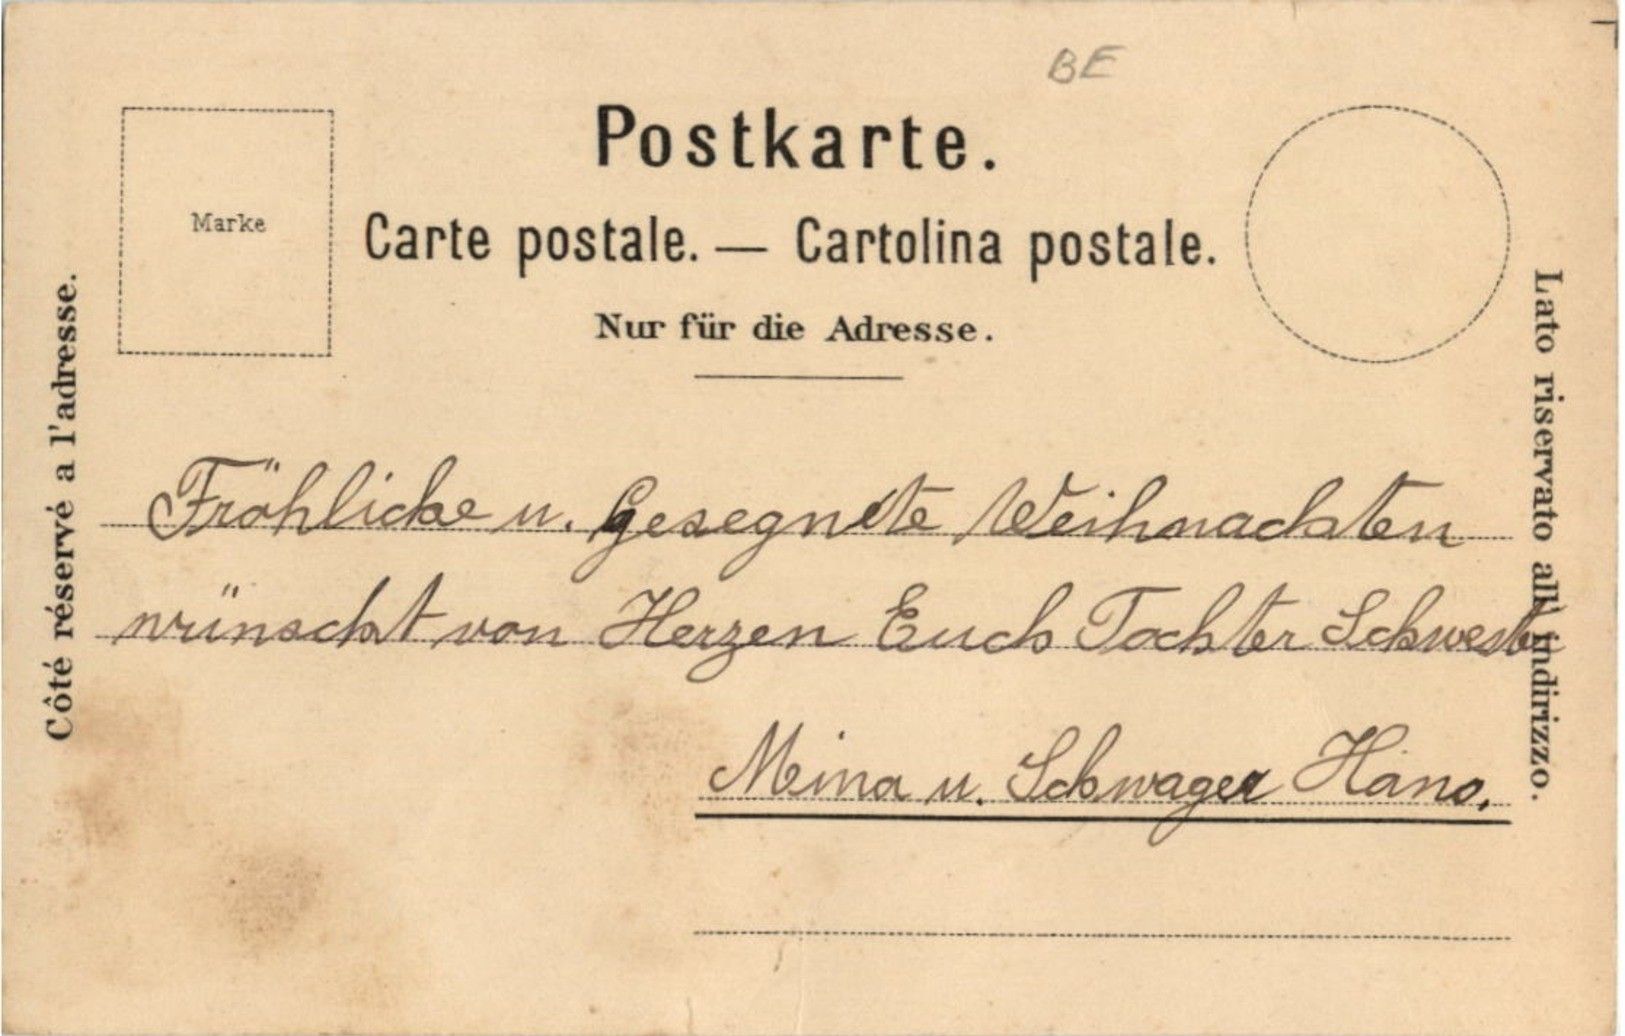 BE
Postkarte.
Marke
Carte postale. — Cartolina postale.
Nur für die Adresse.
Côté réservé a l'adresse.
Lato riservato all' indirizzo.
Fröhliche u. Gesegnete Weihnachten
wünscht von Herzen Euch Tochter Schwester
Mina u. Schwager Hans.